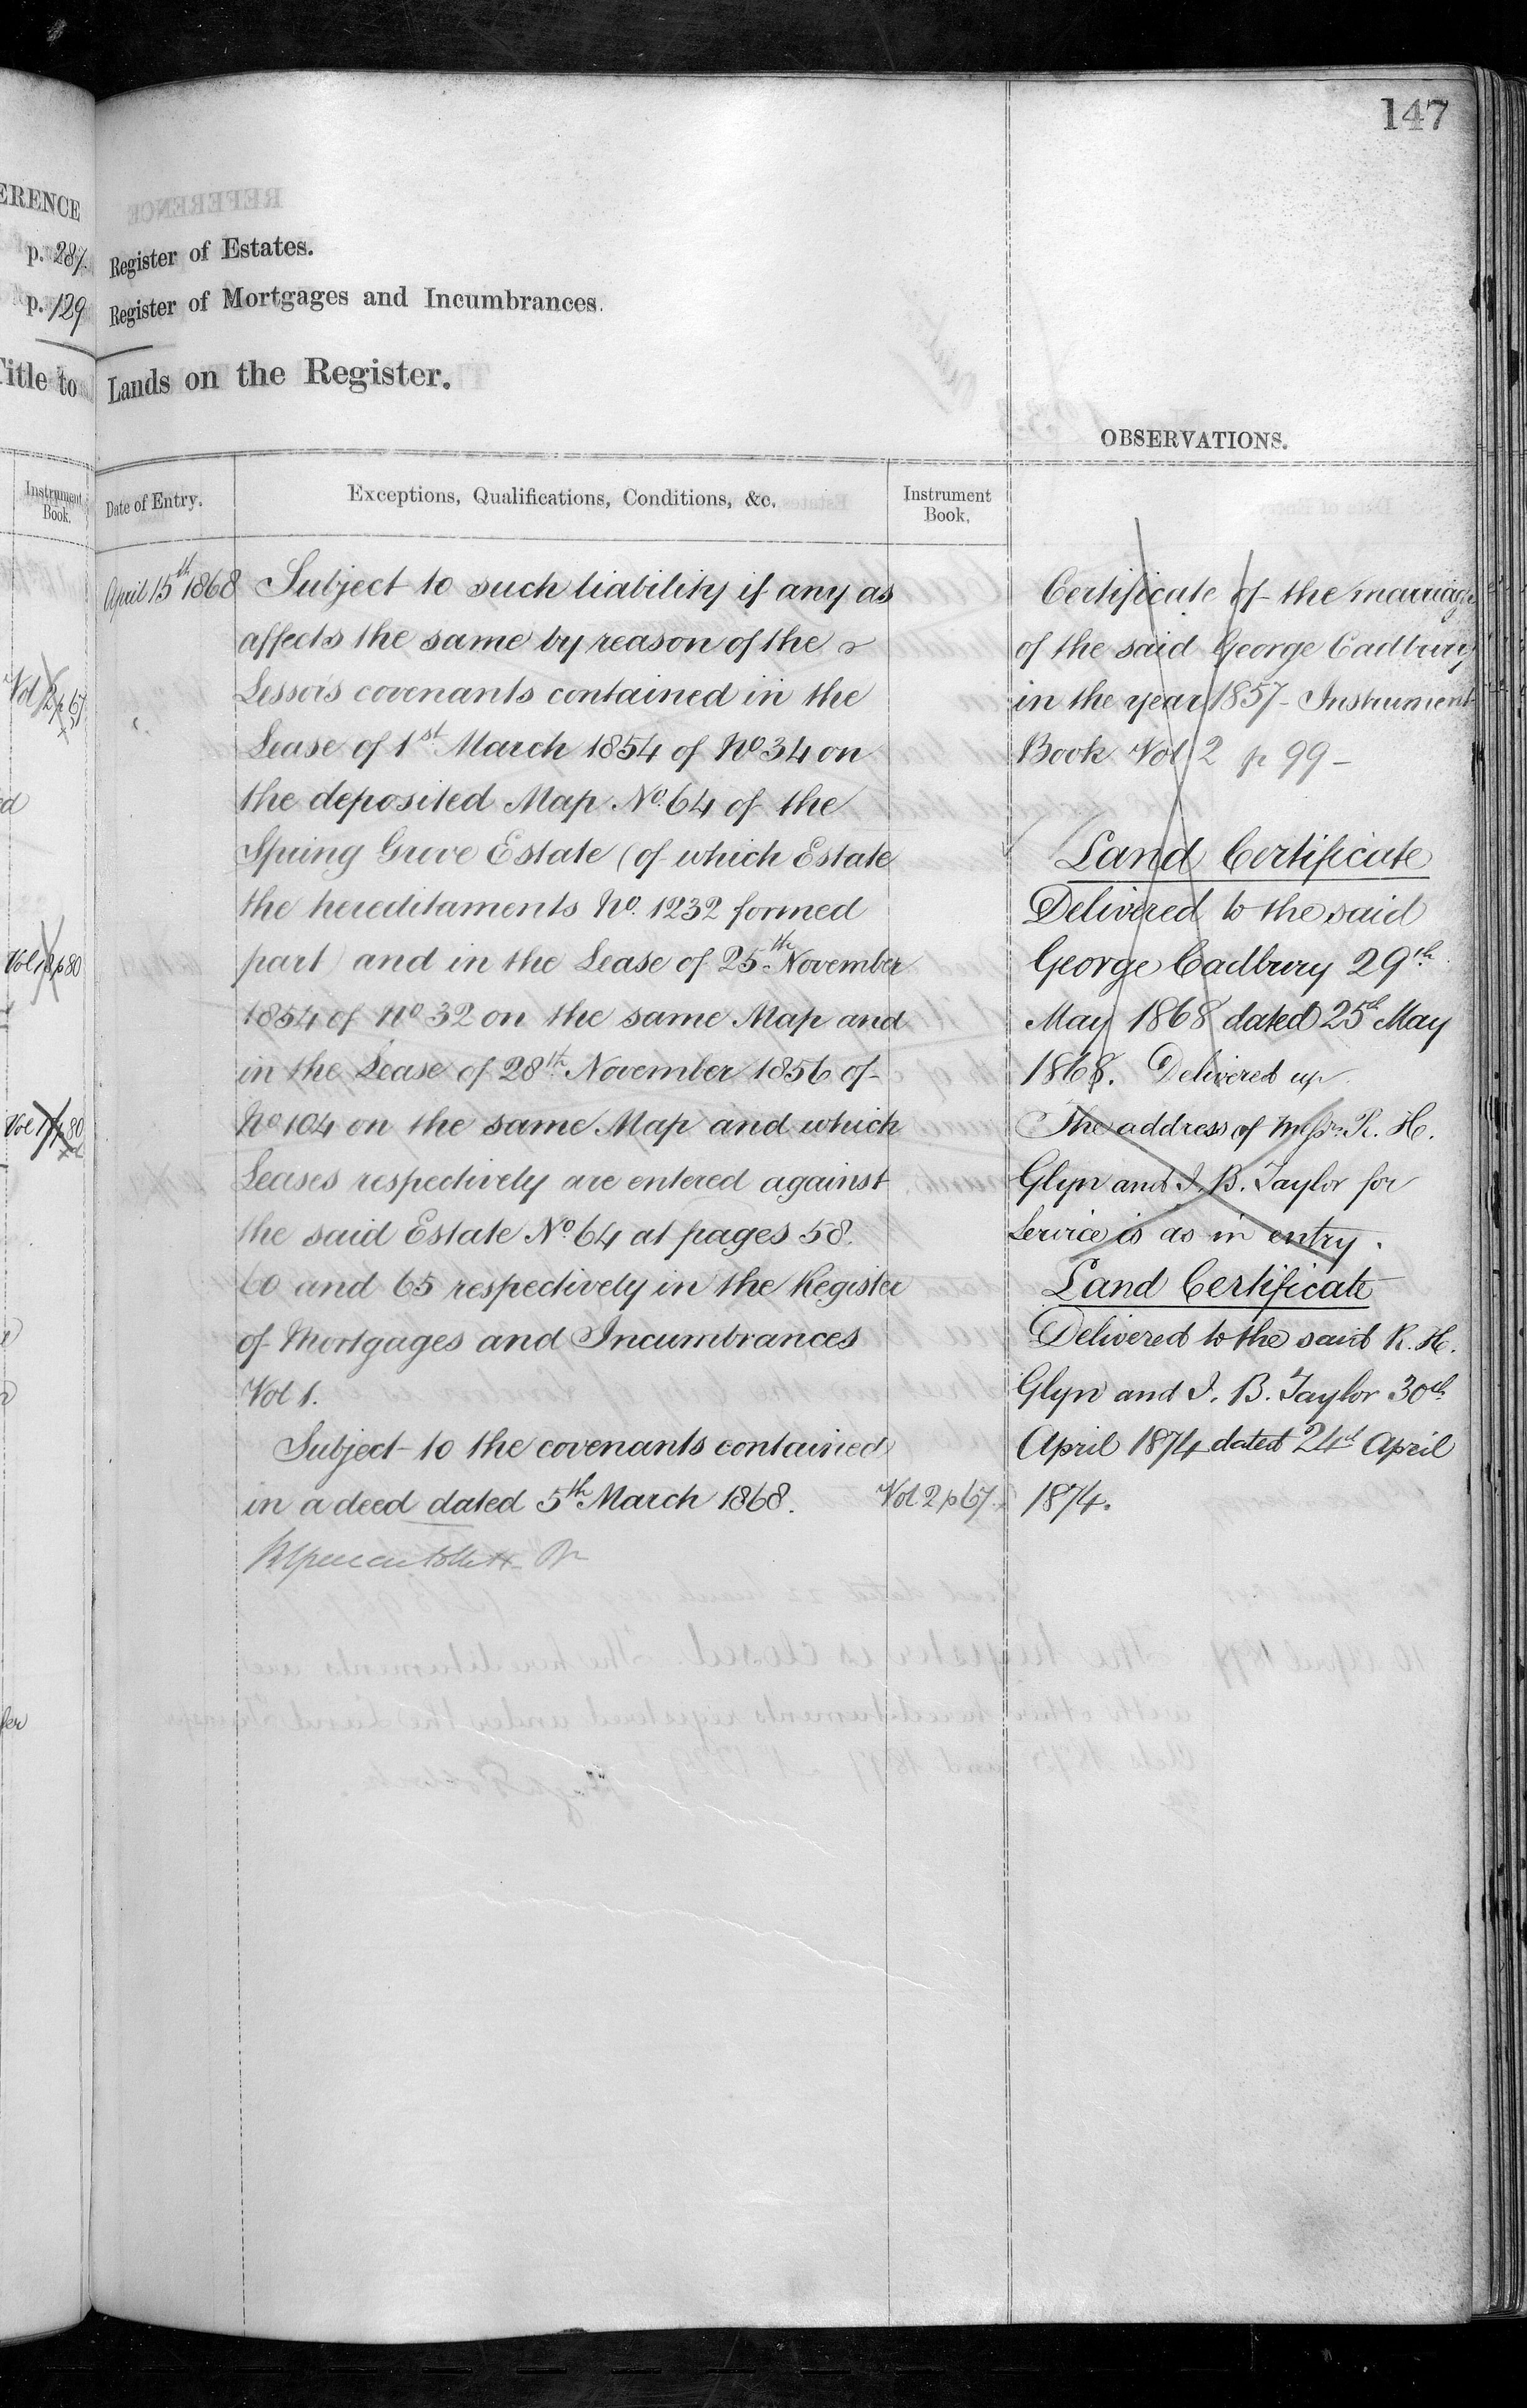 147
ERENCE
p. 287.
p. 129
Title to
Instrument
Book.
Vol 2 p 67
Vol 12 p 80
REFERENCE
Register of Estates.
Register of Mortgages and Incumbrances.
Lands on the Register.
OBSERVATIONS.
Date of Entry.
Exceptions, Qualifications, Conditions, &c.
Instrument
Book.
April 15th 1868
Subject to such liability if any as
affects the same by reason of the
Lessors covenants contained in the
Lease of 1st March 1854 of No 34 on
the deposited Map No. 64 of the
Spring Grove Estate (of which Estate
the hereditaments No. 1232 formed
part) and in the Lease of 25th November
1854 of No 32 on the same Map and
in the Lease of 28th November 1856 of
No 104 on the same Map and which
Leases respectively are entered against
the said Estate No. 64 at pages 58.
60 and 65 respectively in the Register
of Mortgages and Incumbrances
Vol 1.
Subject to the covenants contained
in a deed dated 5th March 1868.
Vol 2 p 67.
Certificate of the marriage
of the said George Cadbury
in the year 1857 - Instrument
Book Vol 2 p 99 -
Land Certificate
Delivered to the said
George Cadbury 29th
May 1868 dated 25th May
1868. Delivered up
The address of Messrs. R. H.
Glyn and I. B. Taylor for
Service is as in entry.
Land Certificate
Delivered to the said R. H.
Glyn and I. B. Taylor 30th
April 1874 dated 24th April
1874.